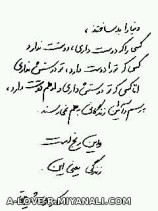 دنیا را بد ساختند،
کسی را که دوست داری، دوستت ندارد
کسی که تو را دوست دارد، تو دوستش نداری
اما کسی که تو دوستش داری و او هم دوستت دارد،
به رسم و آئین زندگانی بهم نمی‌رسند.
و این رنج است
زندگی یعنی این.
A-LOVER.MIYANBLOG.COM